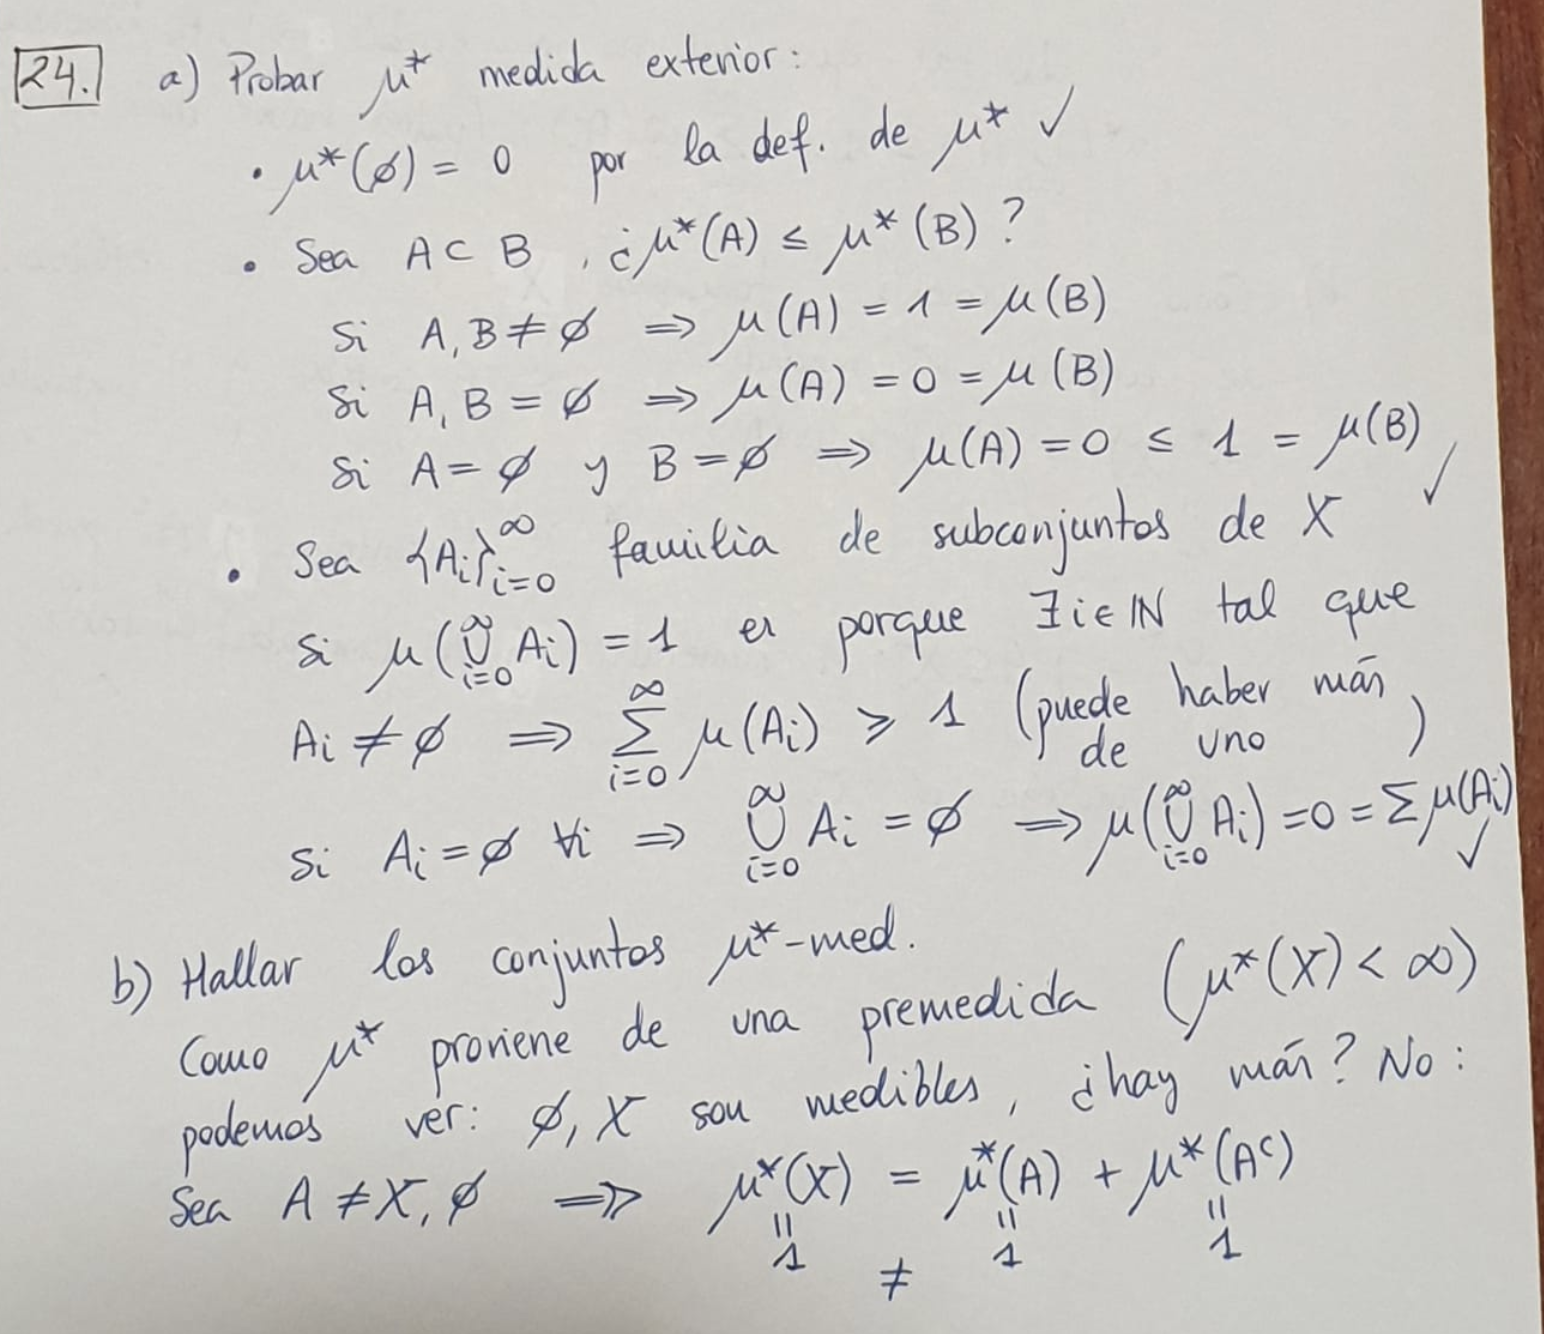 24. a) Probar μ* medida exterior:
• μ*(∅) = 0 por la def. de μ* ✓
• Sea A ⊂ B, ¿μ*(A) ≤ μ*(B)?
Si A, B ≠ ∅ ⟹ μ(A) = 1 = μ(B)
Si A, B = ∅ ⟹ μ(A) = 0 = μ(B)
Si A = ∅ y B = ∅ ⟹ μ(A) = 0 ≤ 1 = μ(B) ✓
• Sea {Ai}_{i=0}^∞ familia de subconjuntos de X
Si μ(⋃_{i=0}^∞ Ai) = 1 es porque ∃i∈ℕ tal que
Ai ≠ ∅ ⟹ ∑_{i=0}^∞ μ(Ai) ≥ 1 (puede haber más de uno)
Si Ai = ∅ ∀i ⟹ ⋃_{i=0}^∞ Ai = ∅ ⟹ μ(⋃_{i=0}^∞ Ai) = 0 = ∑ μ(Ai) ✓
b) Hallar los conjuntos μ*-med.
Como μ* proviene de una premedida (μ*(X) < ∞)
podemos ver: ∅, X son medibles, ¿hay más? No:
Sea A ≠ X, ∅ ⟹ μ*(X) = μ*(A) + μ*(Aᶜ)
|| || ||
1 ≠ 1 1